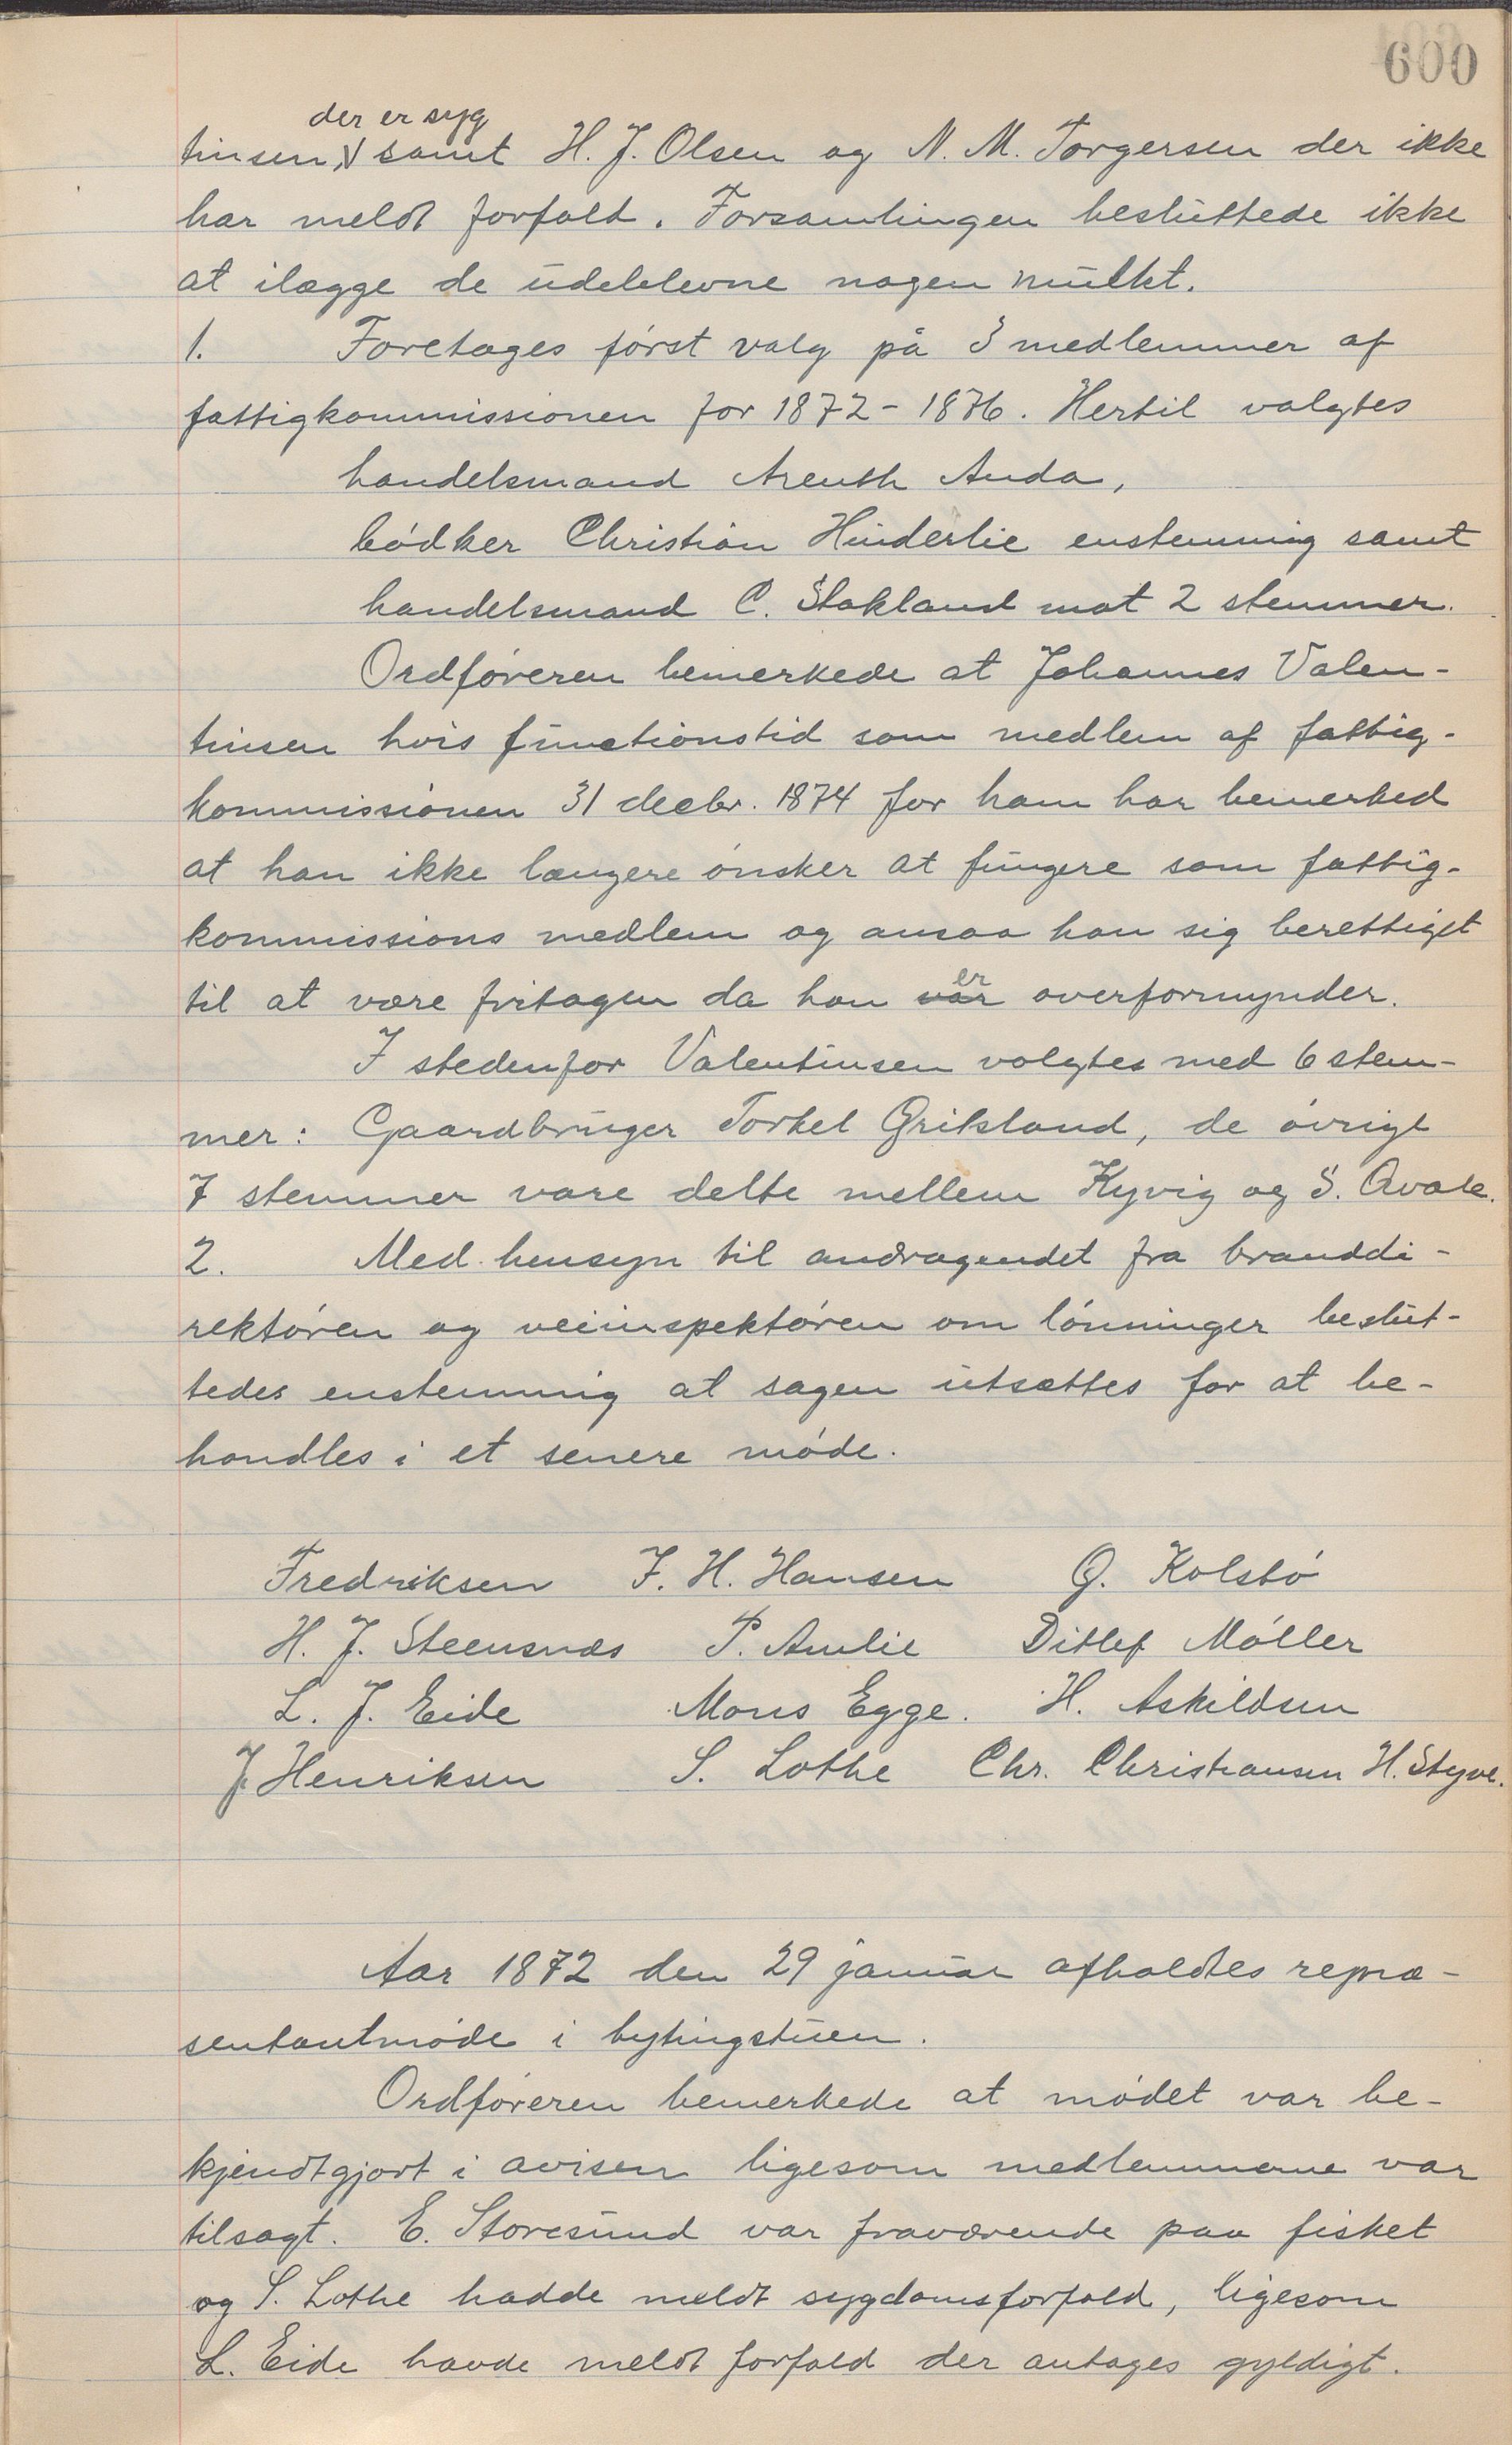 600
der er syg
tinsen, samt H. J. Olsen og N. M. Torgersen der ikke
har meldt forfalt. Forsamlingen besluttede ikke
at ilægge de udeblevne nogen mulkt.
1. Foretages först valg på 3 medlemmer af
fattigkommissionen for 1872-1876. Hertil valgtes
handelsmand Arenth Anda,
bödker Christian Hinderlie enstemmig samt
handelsmand C. Stakland mot 2 stemmer.
Ordföreren bemerkede at Johannes Valen-
tinsen hvis functionstid som medlem af fattig-
kommissionen 31 decbr. 1874 for ham har bemerked
at han ikke længere önsker at fungere som fattig-
kommissions medlem og ansaa han sig berettiget
til at være fritagen da han var er overformynder.
I stedenfor Valentinsen valgtes med 6 stem-
mer: Gaardbruger Torkel Grikstand, de övrige
7 stemmer vare delte mellem Kyvig og S. Qvale.
2. Med hensyn til andragendet fra branddi-
rektören og veiinspektören om lönninger beslut-
tedes enstemmig at sagen utsættes for at be-
handles i et senere möde.
Fredriksen J. H. Hansen G. Kolstö
H. J. Steensnæs P. Amlie Ditlef Möller
L. J. Eide Mons Egge. H. Askildsen
J. Henriksen S. Lothe Chr. Christiansen H. Styve.
Aar 1872 den 29 januar afholdtes repræ-
sentantmöde i bytingstuen.
Ordföreren bemerkede at mödet var be-
kjendtgjort i avisen ligesom medlemmerne var
tilsagt. E. Storesund var fraværende paa fisket
og S. Lothe hadde meldt sygdomsforfald, ligesom
L. Eide havde meldt forfald der antages gyldigt.